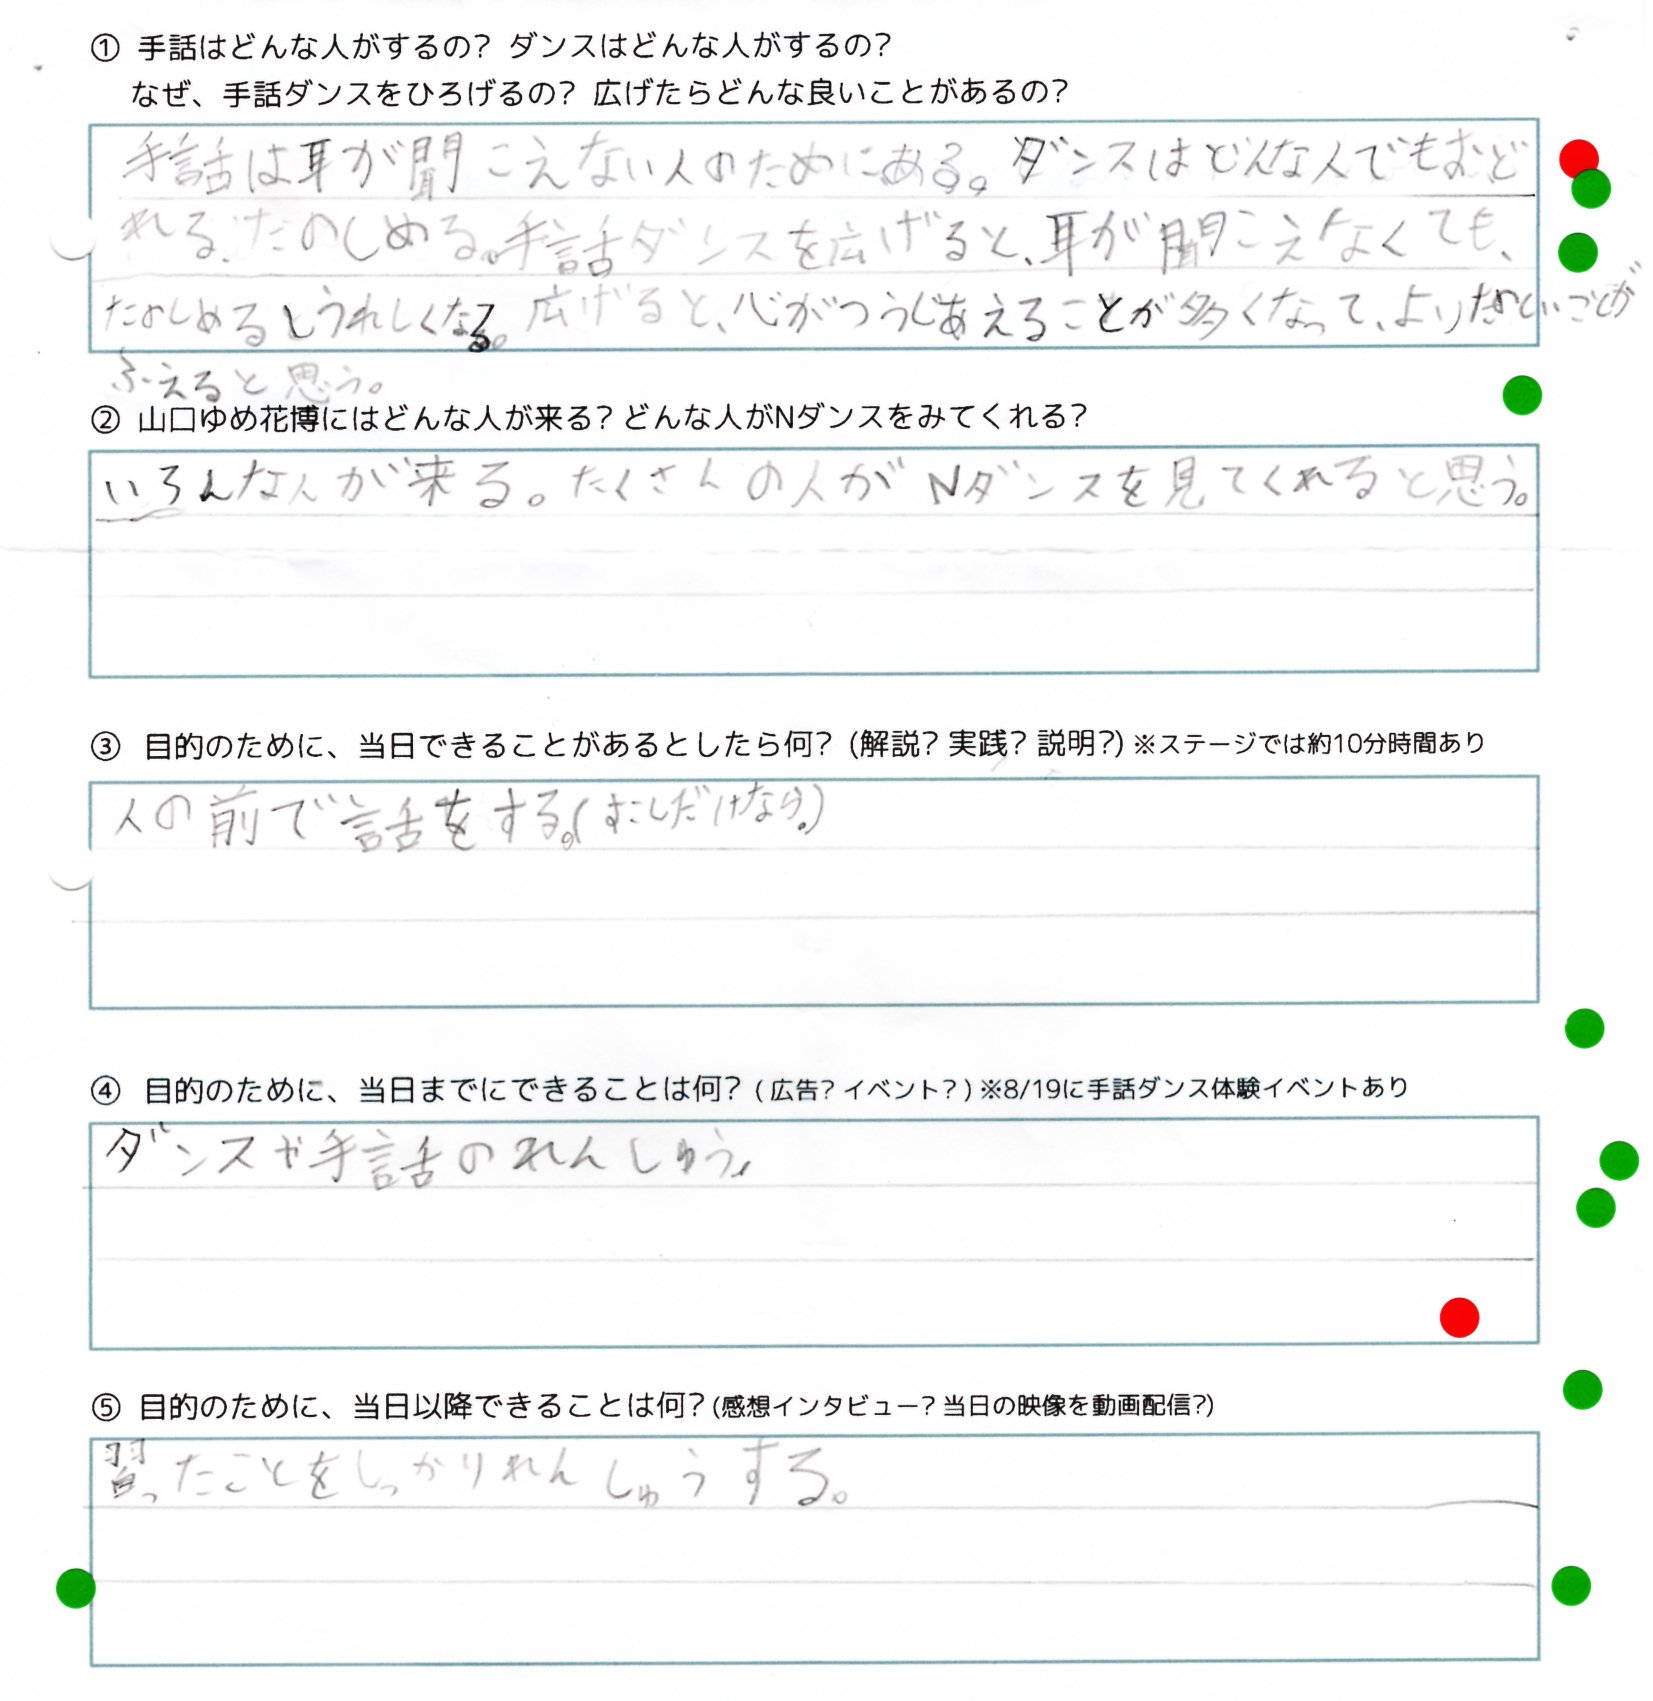 ① 手話はどんな人がするの？ ダンスはどんな人がするの？
なぜ、手話ダンスをひろげるの？ 広げたらどんな良いことがあるの？
手話は耳が聞こえない人のためにある。ダンスはどんな人でもおど
れる、たのしめる。手話ダンスを広げると、耳が聞こえなくても、
たのしめるとうれしくなる。広げると、心がつうじあえることが多くなって、よりたのしいことが
ふえると思う。
② 山口ゆめ花博にはどんな人が来る？ どんな人がNダンスをみてくれる？
いろんな人が来る。たくさんの人がNダンスを見てくれると思う。
③ 目的のために、当日できることがあるとしたら何？ (解説？ 実践？ 説明？) ※ステージでは約10分時間あり
人の前で話をする。(すこしだけなら。)
④ 目的のために、当日までにできることは何？ ( 広告？ イベント？ ) ※8/19に手話ダンス体験イベントあり
ダンスや手話のれんしゅう。
⑤ 目的のために、当日以降できることは何？ (感想インタビュー？ 当日の映像を動画配信？)
習ったことをしっかりれんしゅうする。